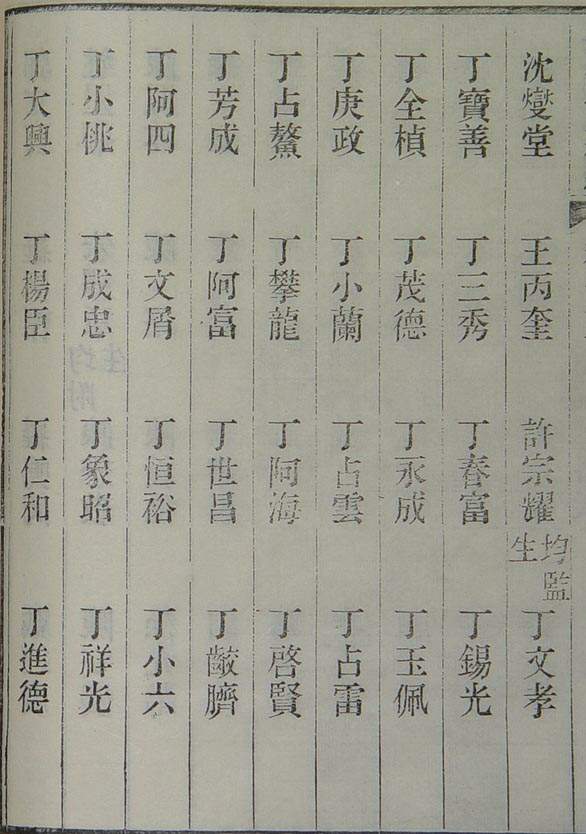 沈燮堂 王丙奎 許宗耀 均監生 丁文孝
丁寶善 丁三秀 丁春富 丁錫光
丁全楨 丁茂德 丁永成 丁玉佩
丁庚政 丁小蘭 丁占雲 丁占雷
丁占鰲 丁攀龍 丁阿海 丁啓賢
丁芳成 丁阿富 丁世昌 丁
丁阿四 丁文屑 丁恒裕 丁小六
丁小桃 丁成忠 丁象昭 丁祥光
丁大興 丁楊臣 丁仁和 丁進德